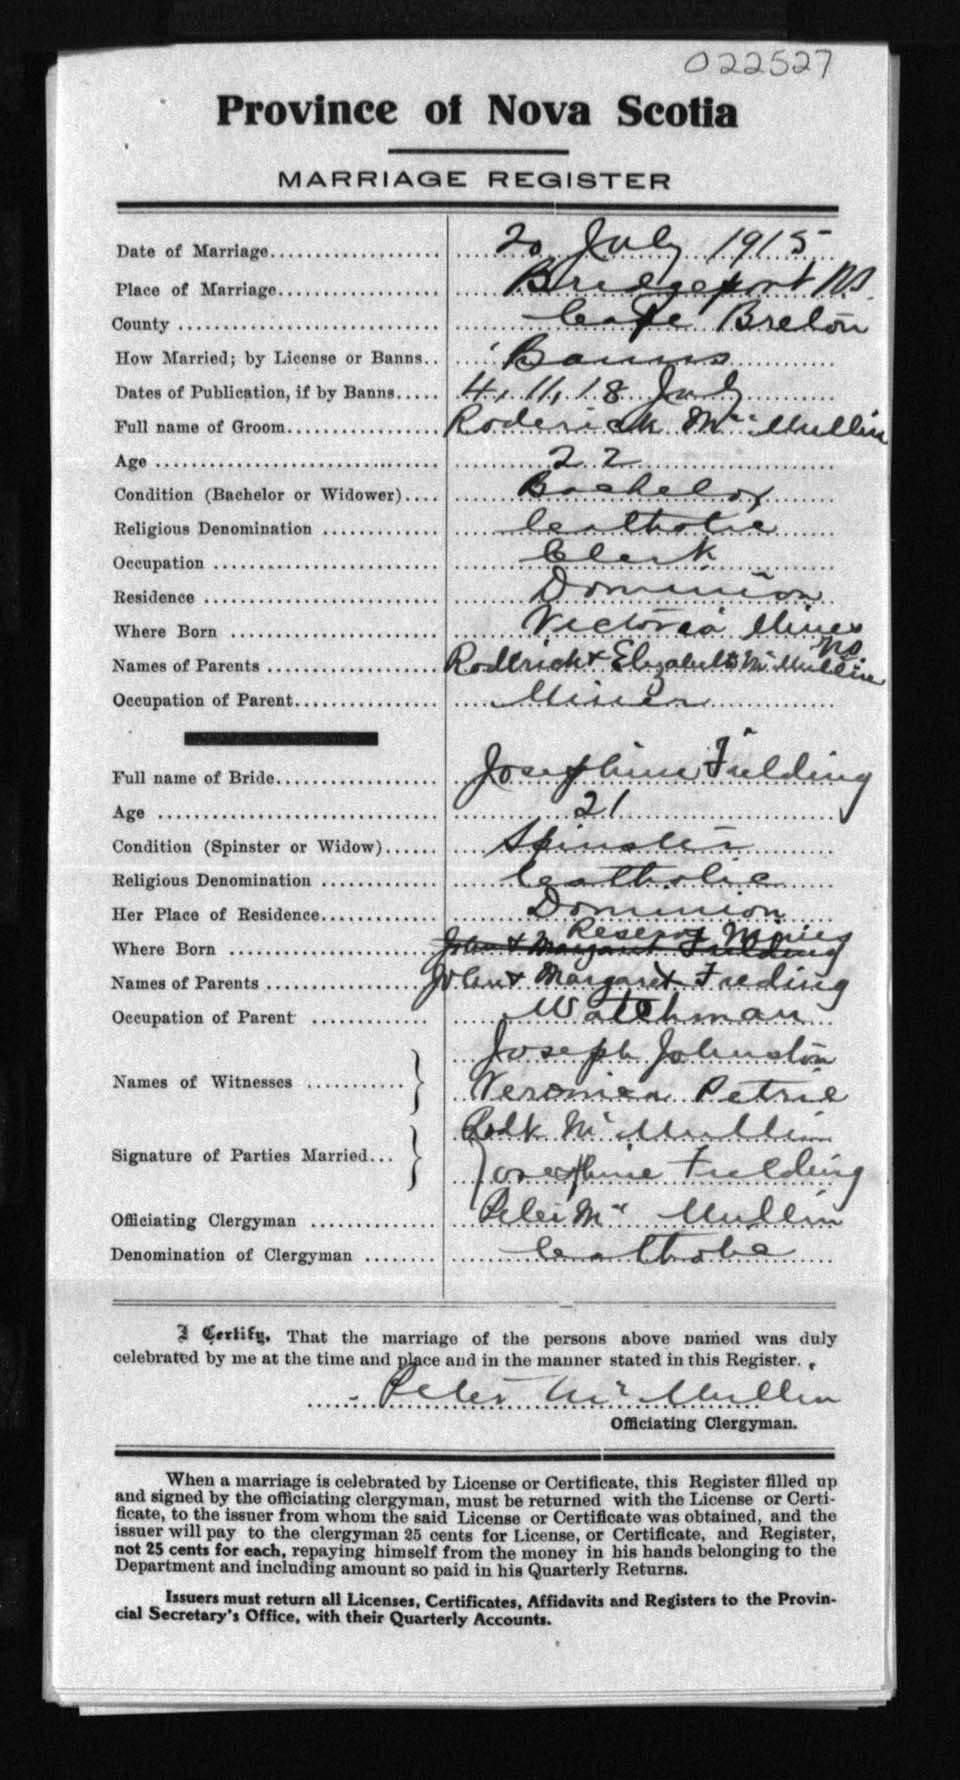 022527
Province of Nova Scotia
MARRIAGE REGISTER
Date of Marriage 20 July 1915
Place of Marriage Bridgeport NS.
County Cape Breton
How Married; by License or Banns Banns
Dates of Publication, if by Banns 4, 11, 18 July
Full name of Groom Roderick Mc Mullin
Age 22
Condition (Bachelor or Widower) Bachelor
Religious Denomination Catholic
Occupation Clerk
Residence Dominion
Where Born Victoria Mines NS
Names of Parents Rodrick & Elizabeth Mc Mullin
Occupation of Parent Miner
Full name of Bride Josephine Fielding
Age 21
Condition (Spinster or Widow) Spinster
Religious Denomination Catholic
Her Place of Residence Dominion
Reserve Mines
Where Born John & Margaret Fielding
Names of Parents John & Margaret Fielding
Occupation of Parent Watchman
Joseph Johnston
Names of Witnesses
Veronica Petrie
Rodk Mc Mullin
Signature of Parties Married
Josephine Fielding
Officiating Clergyman Peter Mc Mullin
Denomination of Clergyman Catholic
I Certify, That the marriage of the persons above named was duly
celebrated by me at the time and place and in the manner stated in this Register.
Peter Mc Mullin
Officiating Clergyman.
When a marriage is celebrated by License or Certificate, this Register filled up
and signed by the officiating clergyman, must be returned with the License or Certi-
ficate, to the issuer from whom the said License or Certificate was obtained, and the
issuer will pay to the clergyman 25 cents for License, or Certificate, and Register,
not 25 cents for each, repaying himself from the money in his hands belonging to the
Department and including amount so paid in his Quarterly Returns.
Issuers must return all Licenses, Certificates, Affidavits and Registers to the Provin-
cial Secretary's Office, with their Quarterly Accounts.